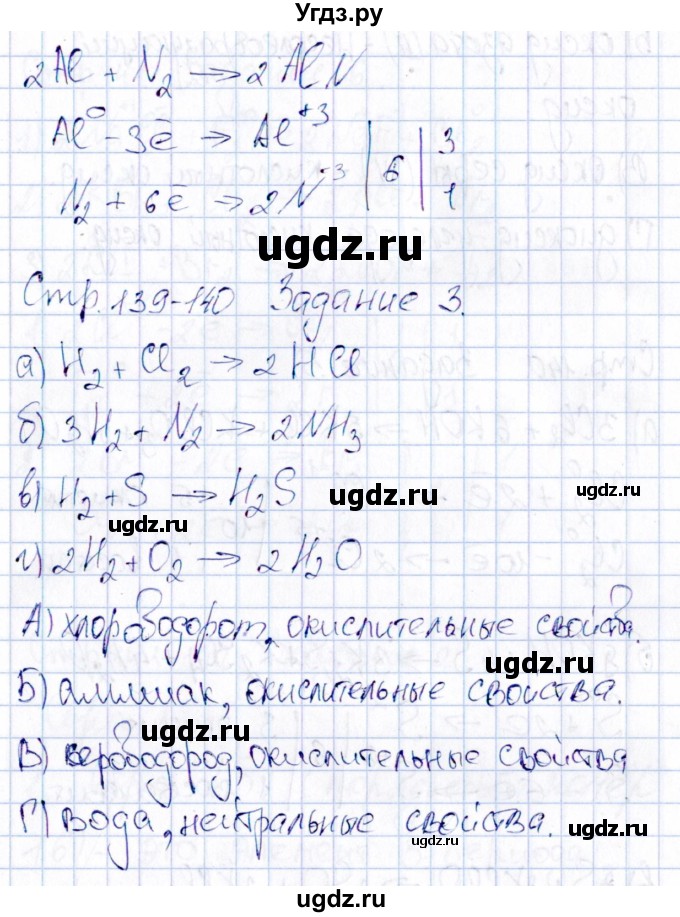 Угдз.ру
2Al + N₂ → 2AlN
Al⁰ - 3ē → Al⁺³ | | 3
N₂ + 6ē → 2N⁻³ | 6 | 1
ugdz.ru
Стр. 139-140 Задание 3.
а) H₂ + Cl₂ → 2HCl
б) 3H₂ + N₂ → 2NH₃
в) H₂ + S → H₂S ugdz.ru ugdz.ru
ugdz.ru
г) 2H₂ + O₂ → 2H₂O
А) хлороводорот, окислительные свойства.
ugdz.ru
Б) аммиак, окислительные свойства.
ugdz.ru
В) сероводород, окислительные свойства
Г) вода, нейтральные свойства. ugdz.ru
ugdz.ru
ugdz.ru